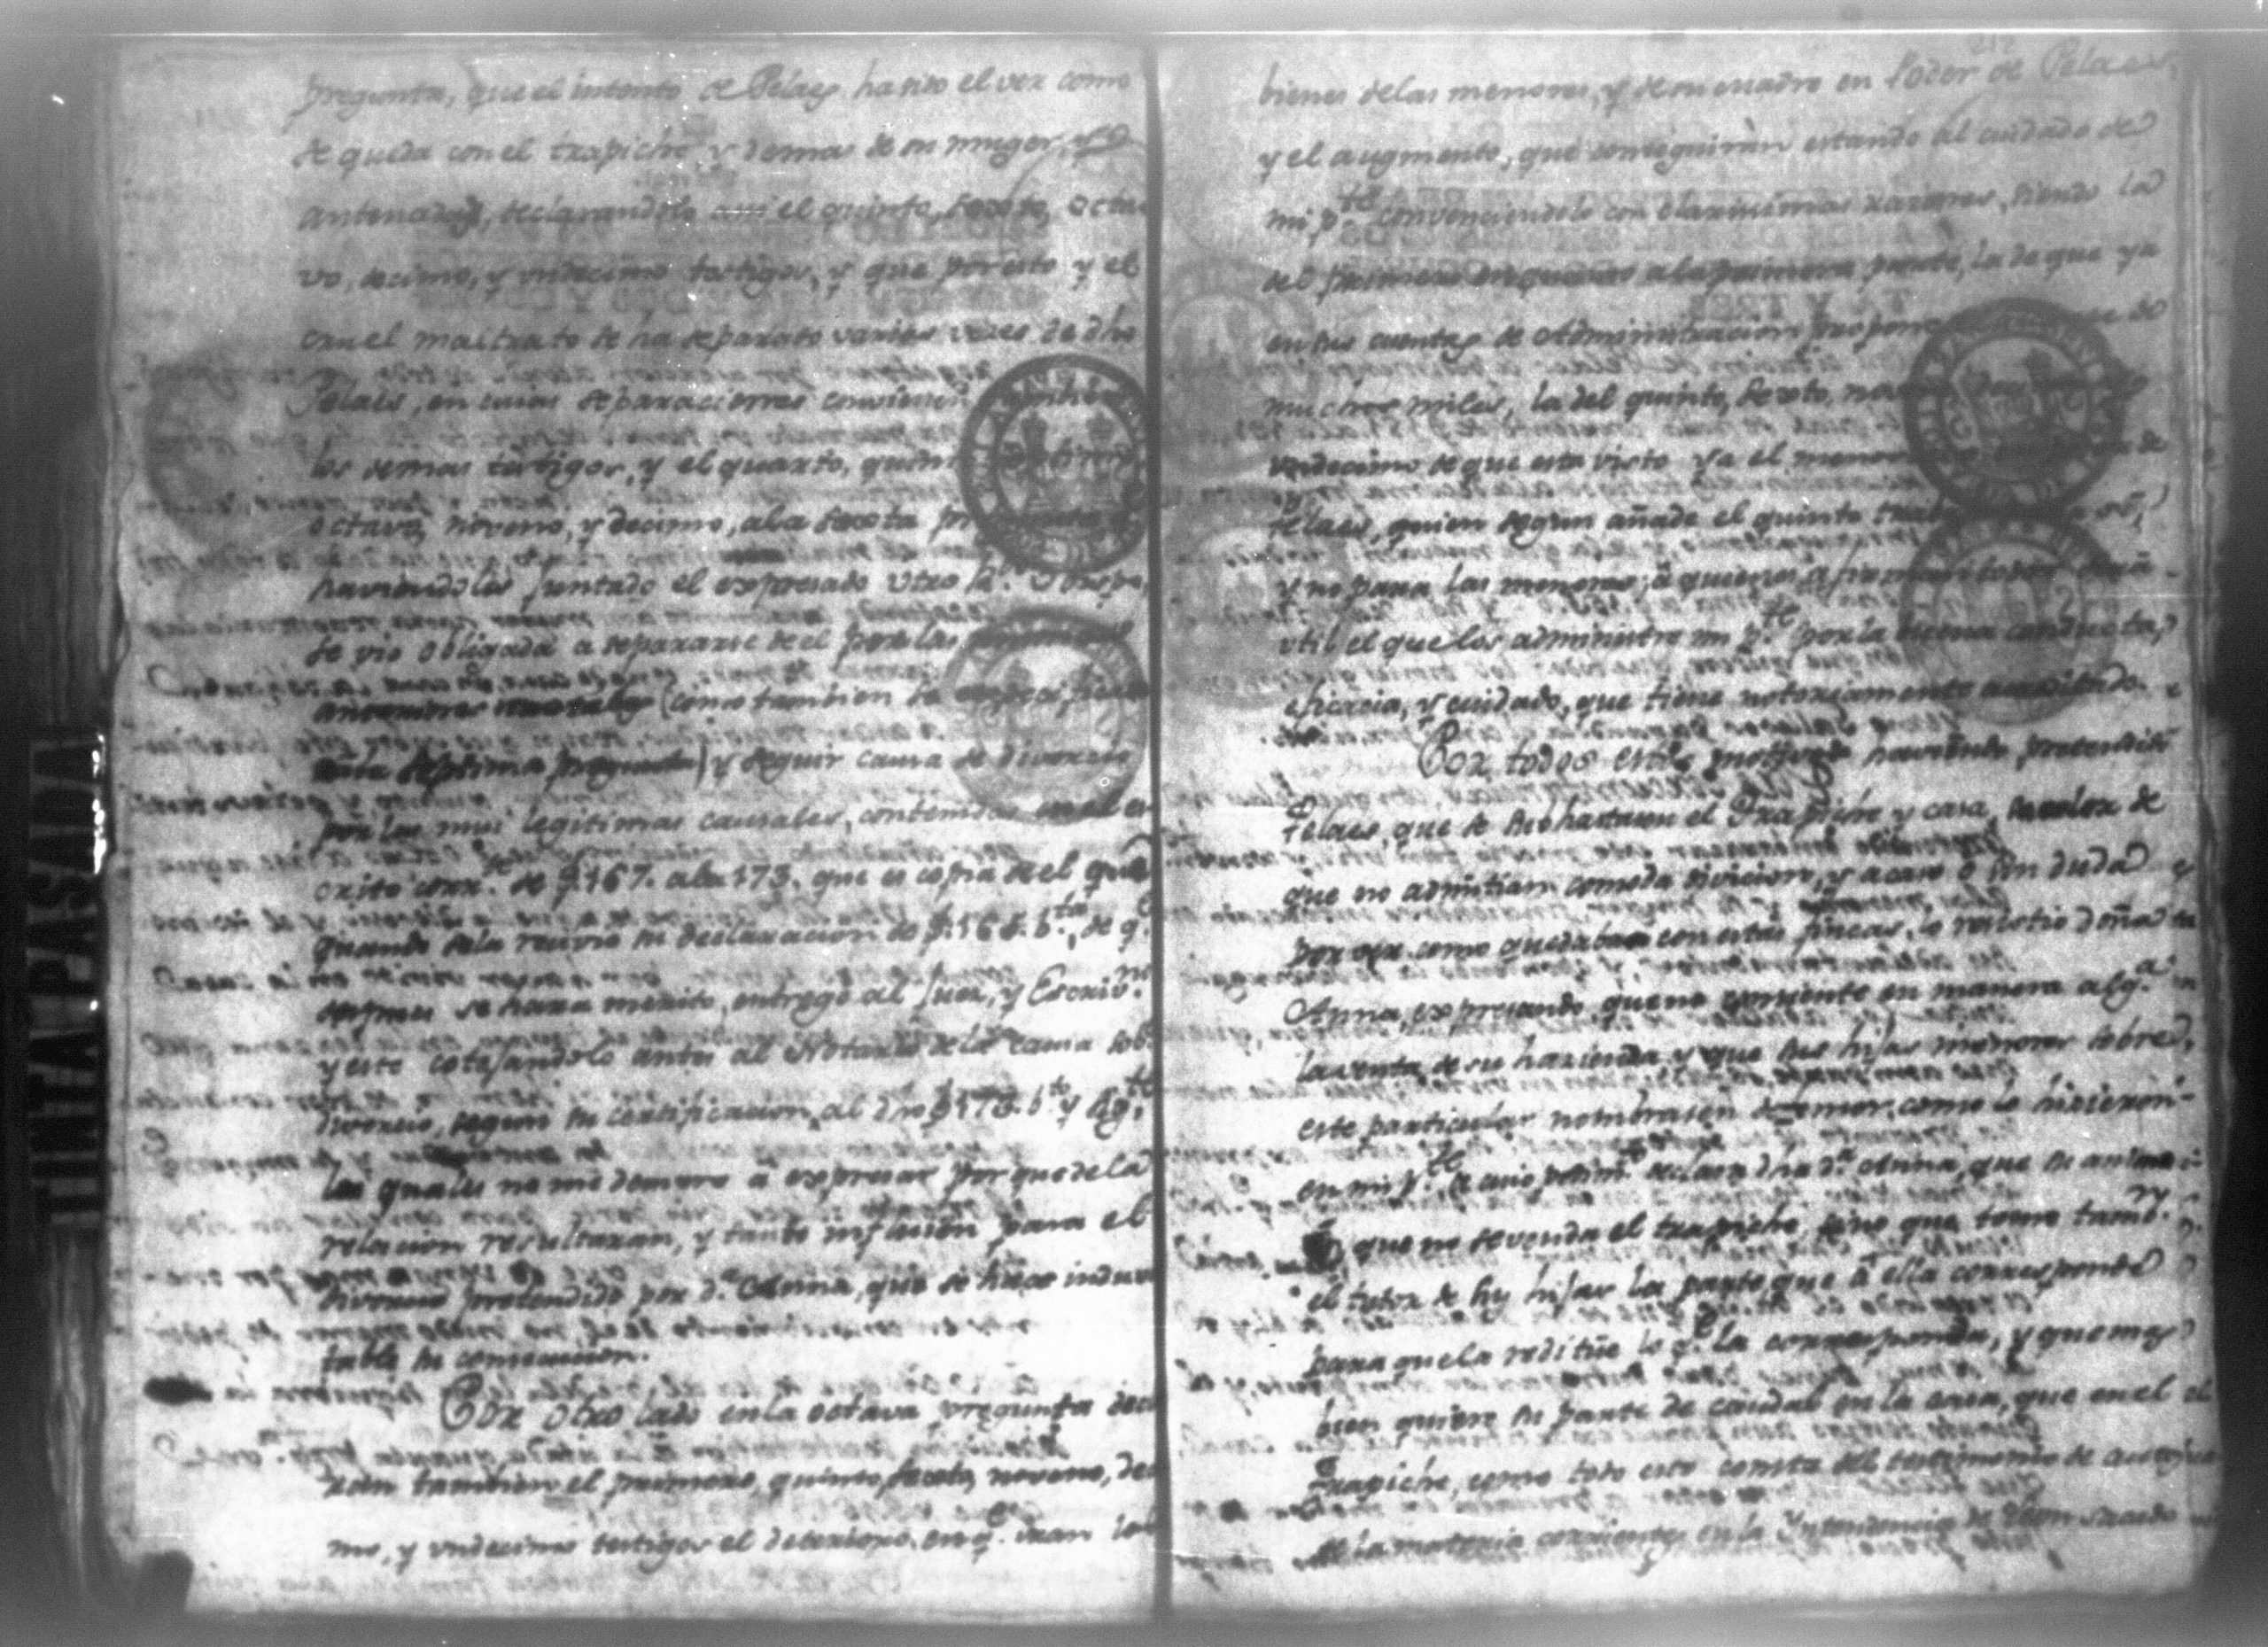 pregunta, que el intento de Pelaes ha sido el ver como
se queda con el trapiche y demas de su muger, y
antenadas, declarandolo assi el quinto, sexto, octa
vo, decimo, y undecimo testigos, y que por esto y el
cruel maltrato se ha separado varias veces de dho
Pelaes, en cuias separaciones convienen
los demas testigos, y el quarto, quinto
octavo, noveno, y decimo, a la sexta
haviendoles juntado el expresado Vtro
se vio obligada a separarse de el por las
anteriores (como tambien se
a la septima pregunta) y seguir causa de divorcio
por las mui legitimas causales, contenidas en el es
crito corr.te de f. 167. a la 173. que es copia de el que
quando se la recivio su declaracion de f. 165. b.ta, de q.e
despues se hara merito, entregó al Juez, y Escriv.no
y este cotejandolo antes al Notario de la causa sob.e
divorcio, segun su certificacion al dho f. 173. b.to y sig.te
las quales no me demoro á expresar por que de la
relacion resultaran, y tanto influien para el
divorcio pretendido por d.a Anna, que se hace indubi
table su consecucion.
Por otro lado en la octava pregunta decla
ran tambien el primero, quinto, sexto, noveno, deci
mo, y undecimo testigos el deterioro, en q.e iran los
212
bienes de las menores, y de su madre en Poder de Pelaes,
y el augmento, que conseguirán estando al cuidado de
mi p.te convenciendolo con clarissimas razones, siendo la
del primero en quanto a la primera parte, la de que ya
en sus cuentas de Administracion propone
muchos miles, la del quinto, sexto,
undecimo de que esta visto ya el menos
Pelaes, quien segun añade el quinto
y no para las menores; á quienes afirman todos
util el que los administre mi p.te por la buena conducta,
eficacia, y cuidado, que tiene notoriamente acreditado.
Por todos estos motivos haviendo pretendido
Pelaes, que se subhastasen el Trapiche y casa, a color de
que no admitian comoda division, y acaso ó sin duda
por ver como quedaban con estas fincas, lo resistió doña
Anna, expresando, que no consiente en manera alg.a
la venta de su hazienda, y que sus hijas menores sobre
este particular nombrasen defensor, como lo hizieron
en mi p.te a cuio pedim.to declara dha d.a Anna, que su animo
es que no se venda el trapiche, sino que tome tamb.n
el tutor de sus hijas la parte, que á ella corresponde
para que la reditúe lo q.e la corresponda, y que mas
bien quiere su parte de caudal en la casa, que en el
Trapiche, como todo esto consta del testimonio de autos
de la materia corrientes en la Intendencia de